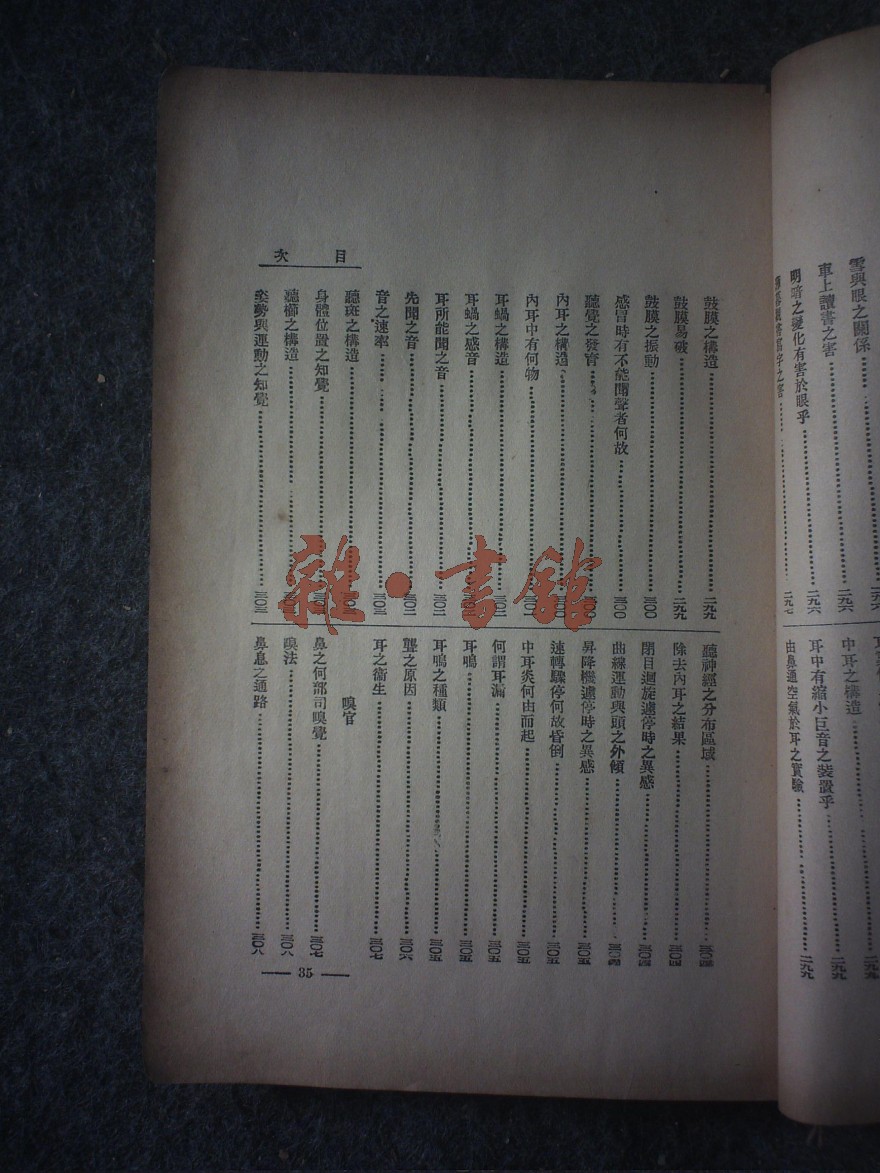 雪與眼之關係……二九六
車上讀書之害……二九六
明暗之變化有害於眼乎……二九六
中耳之構造……二九九
耳中有縮小巨音之裝置乎……二九九
由鼻通空氣於耳之實驗……二九九
目次
鼓膜之構造……二九九
鼓膜易破……二九九
鼓膜之振動……三〇〇
感冒時有不能聞聲者何故……三〇〇
聽覺之發育
內耳之構造
內耳中有何物
耳蝸之構造
耳蝸之感音
耳所能聞之音
先聞之音
音之速率
聽斑之構造
身體位置之知覺
聽櫛之構造
姿勢與運動之知覺……三〇三
聽神經之分布區域……三〇四
除去內耳之結果……三〇四
閉目迴旋遽停時之異感……三〇四
曲線運動與頭之外傾……三〇四
昇降機遽停時之異感……三〇五
速轉驟停何故昏倒……三〇五
中耳炎何由而起……三〇五
何謂耳漏……三〇五
耳鳴……三〇五
耳鳴之種類……三〇五
聾之原因……三〇六
耳之衞生……三〇七
嗅官
鼻之何部司嗅覺……三〇七
嗅法……三〇八
鼻息之通路……三〇八
— 35 —
雜·書館